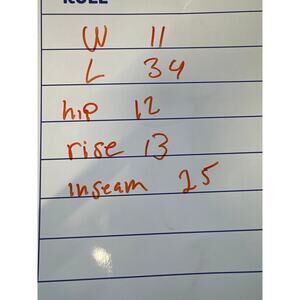 W 11
L 34
hip 12
rise 13
inseam 25